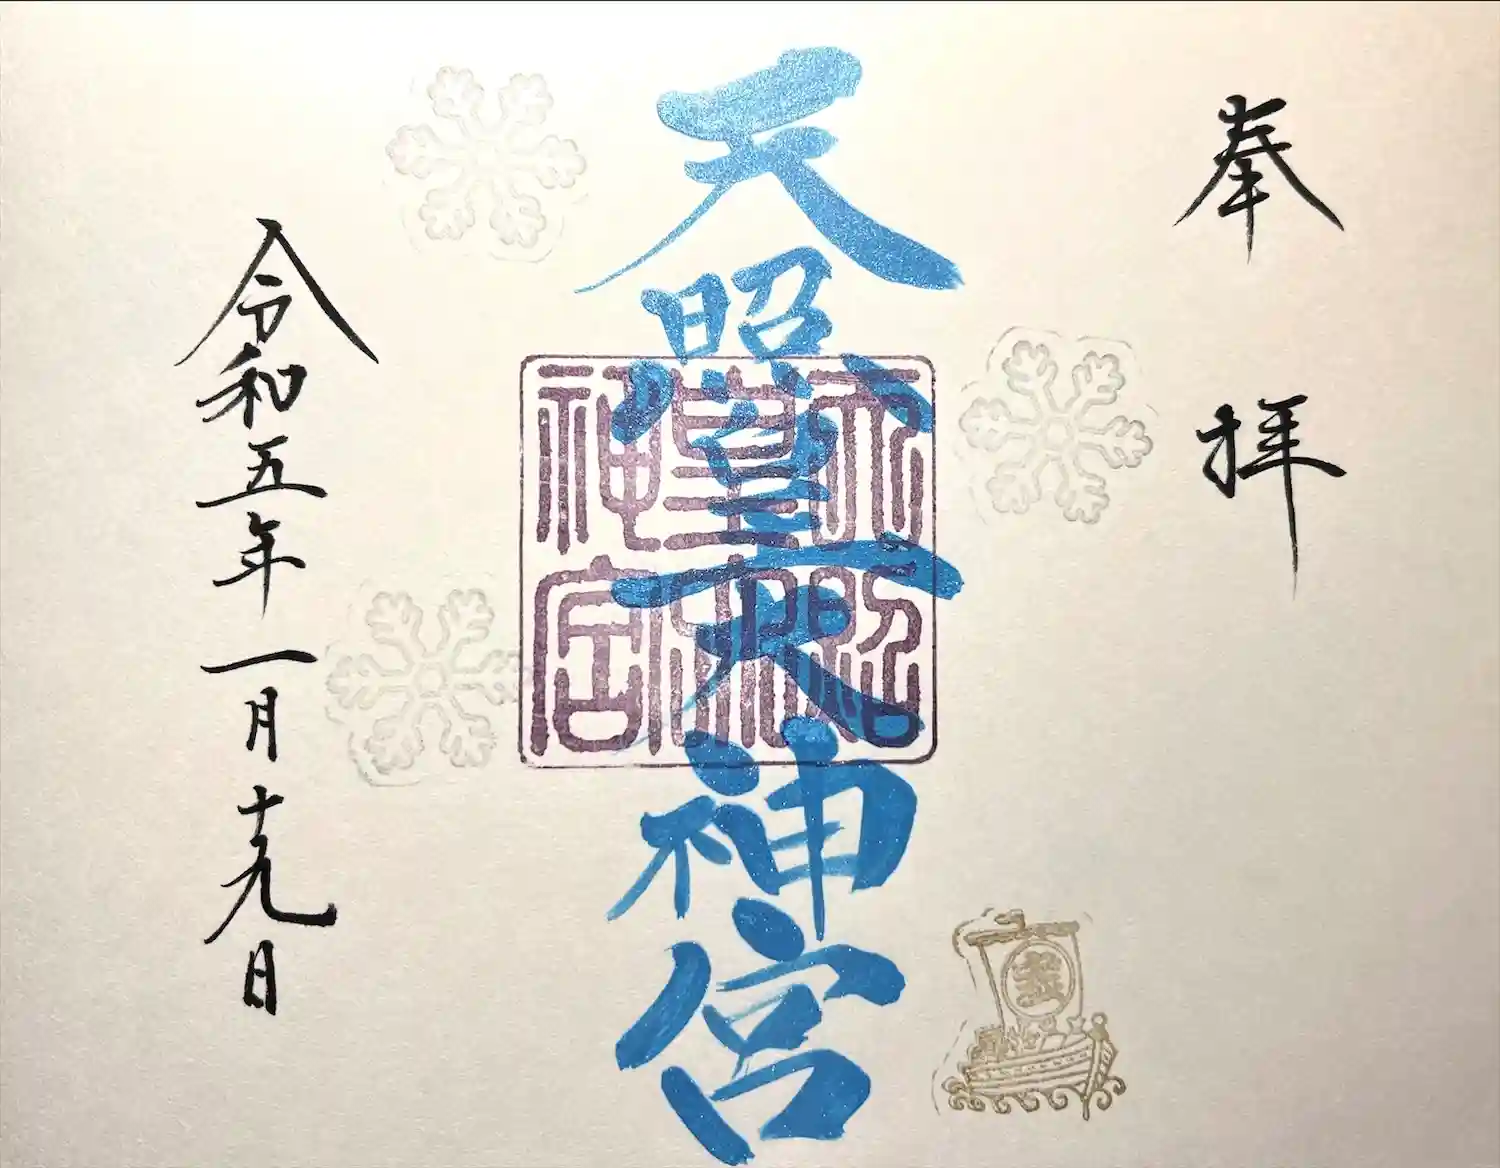 奉拝
天照皇大神宮
天照
皇大
神宮
令和五年一月十九日